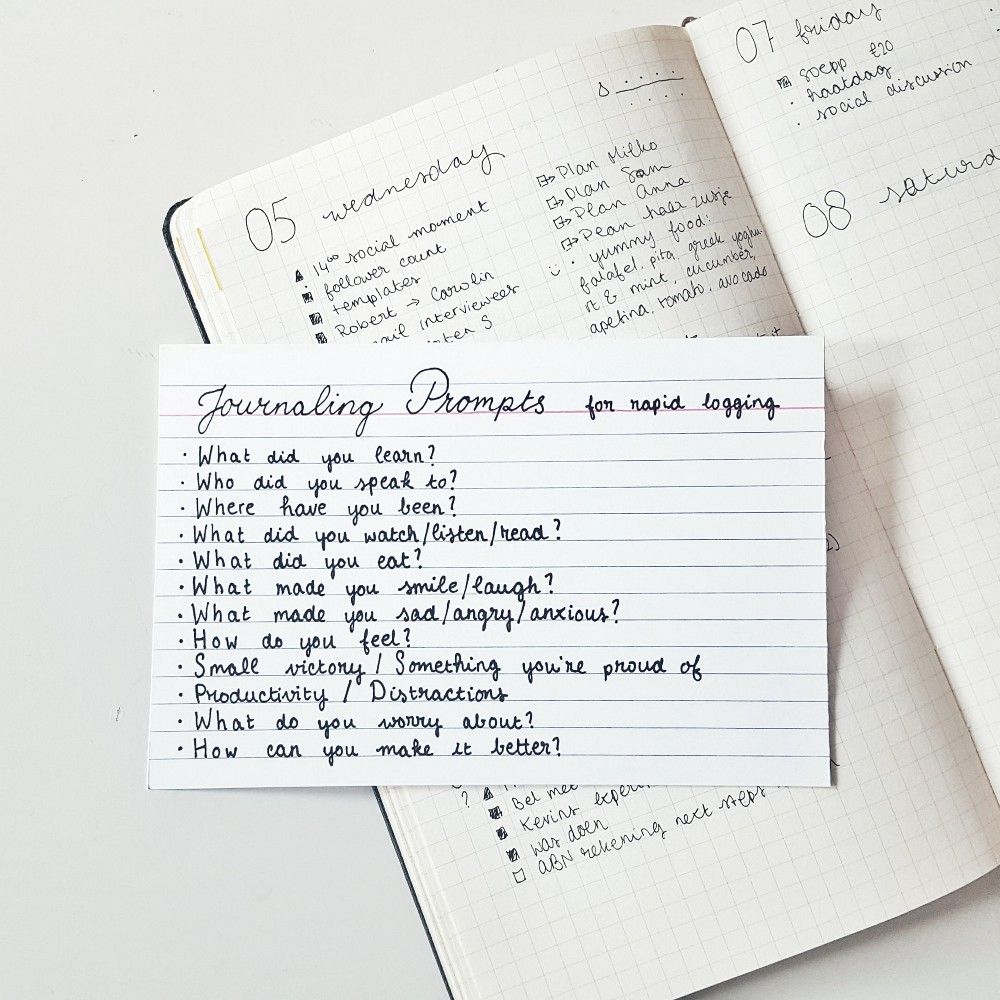 05 wednesday
14⁰⁰ social moment
follower count
templates
Robert → Carolin
interviewees
S
Plan Milko
Plan Sam
Plan Anna
Plan haar zusje
yummy food:
falafel, pita, greek yoghu-
rt & mint, cucumber,
apetina, tomato, avocado
07 friday
soepp £20
haatdag
social discussion
08 saturd
Journaling Prompts for rapid logging
· What did you learn?
· Who did you speak to?
· Where have you been?
· What did you watch/listen/read?
· What did you eat?
· What made you smile/laugh?
· What made you sad/angry/anxious?
· How do you feel?
· Small victory / Something you're proud of
· Productivity / Distractions
· What do you worry about?
· How can you make it better?
?
Bel
Kevins
was doen
ABN rekening next steps